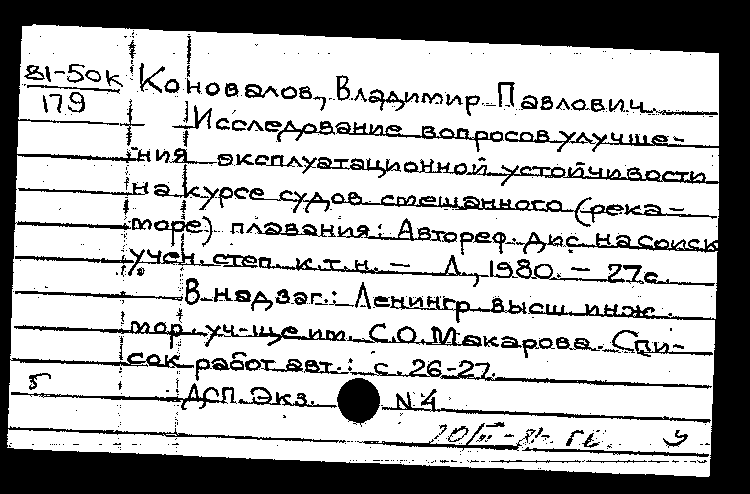 81-50к
179
Коновалов, Владимир Павлович.
Исследование вопросов улучше-
ния эксплуатационной устойчивости
на курсе судов смешанного (река-
море) плавания: Автореф. дис. на соиск
учен. степ. к.т.н. - Л., 1980. - 27с.
В надзаг.: Ленингр высш. инж.
мор. уч-ще им. С.О. Макарова. Спи-
сок работ авт.: с. 26-27.
ДСП. Экз. N 4